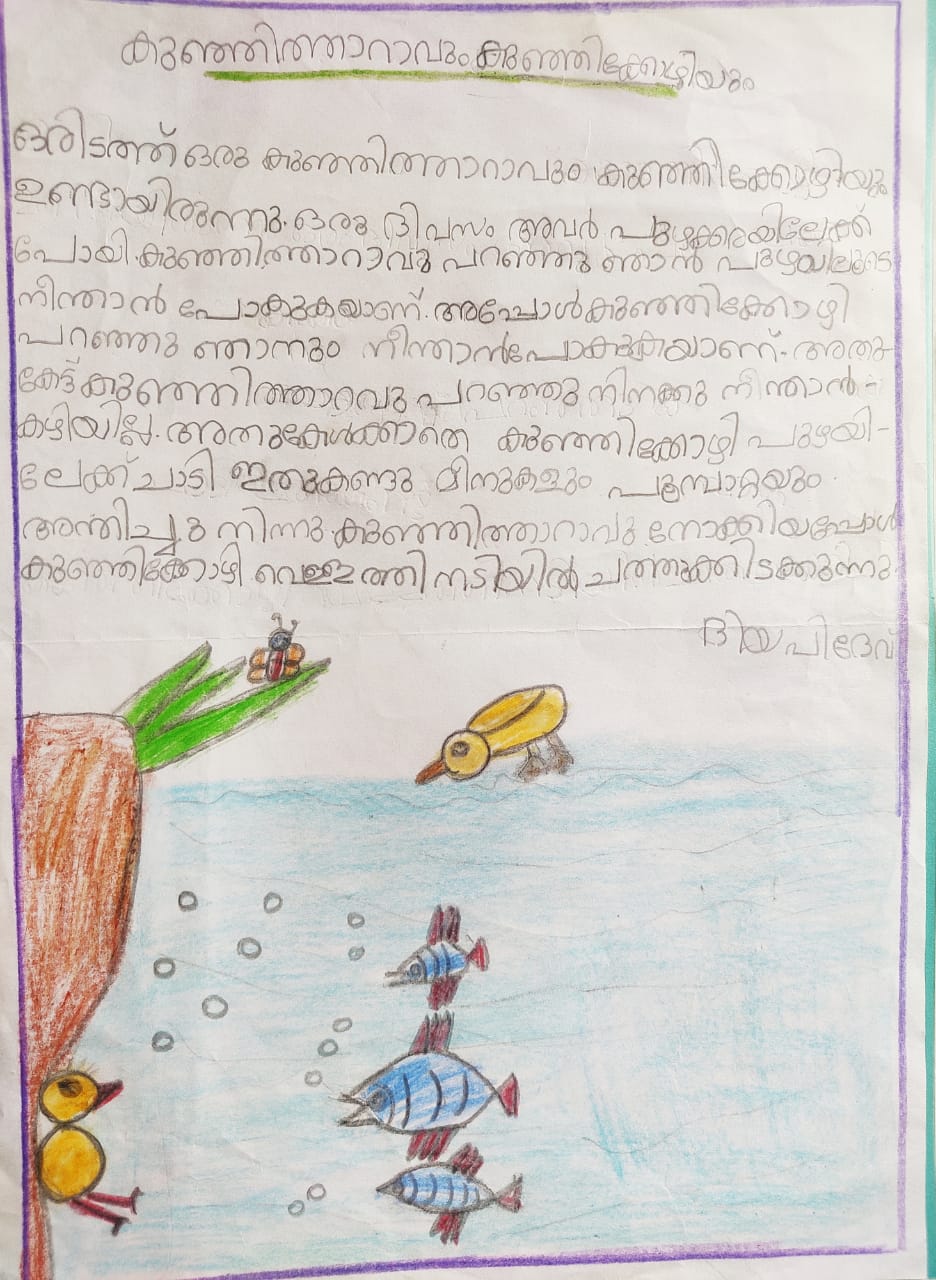 കുഞ്ഞിത്താറാവും കുഞ്ഞിക്കോഴിയും
ഒരിടത്ത് ഒരു കുഞ്ഞിത്താറാവും കുഞ്ഞിക്കോഴിയും
ഉണ്ടായിരുന്നു. ഒരു ദിപസം അവർ പുഴക്കരയിലേക്ക്
പോയി. കുഞ്ഞിത്താറാവു പറഞ്ഞു ഞാൻ പുഴയിലൂടെ
നീന്താൻ പോകുകയാണ്. അപ്പോൾ കുഞ്ഞിക്കോഴി
പറഞ്ഞു ഞാനും നീന്താൻപോകുകയാണ്. അതു
കേട്ട് കുഞ്ഞിത്താറവു പറഞ്ഞു നിനക്കു നീന്താൻ-
കഴിയില്ല. അതുകേൾക്കാതെ കുഞ്ഞിക്കോഴി പുഴയി-
ലേക്ക് ചാടി ഇതുകണ്ടു മീനുകളും പൂമ്പാറ്റയും
നിന്നു. കുഞ്ഞിത്താറാവു നോക്കിയപ്പോൾ
കുഞ്ഞിക്കോഴി വെള്ളത്തി നടിയിൽ ചത്തുക്കിടക്കുന്നു.
ദിയ പി ദേവ്